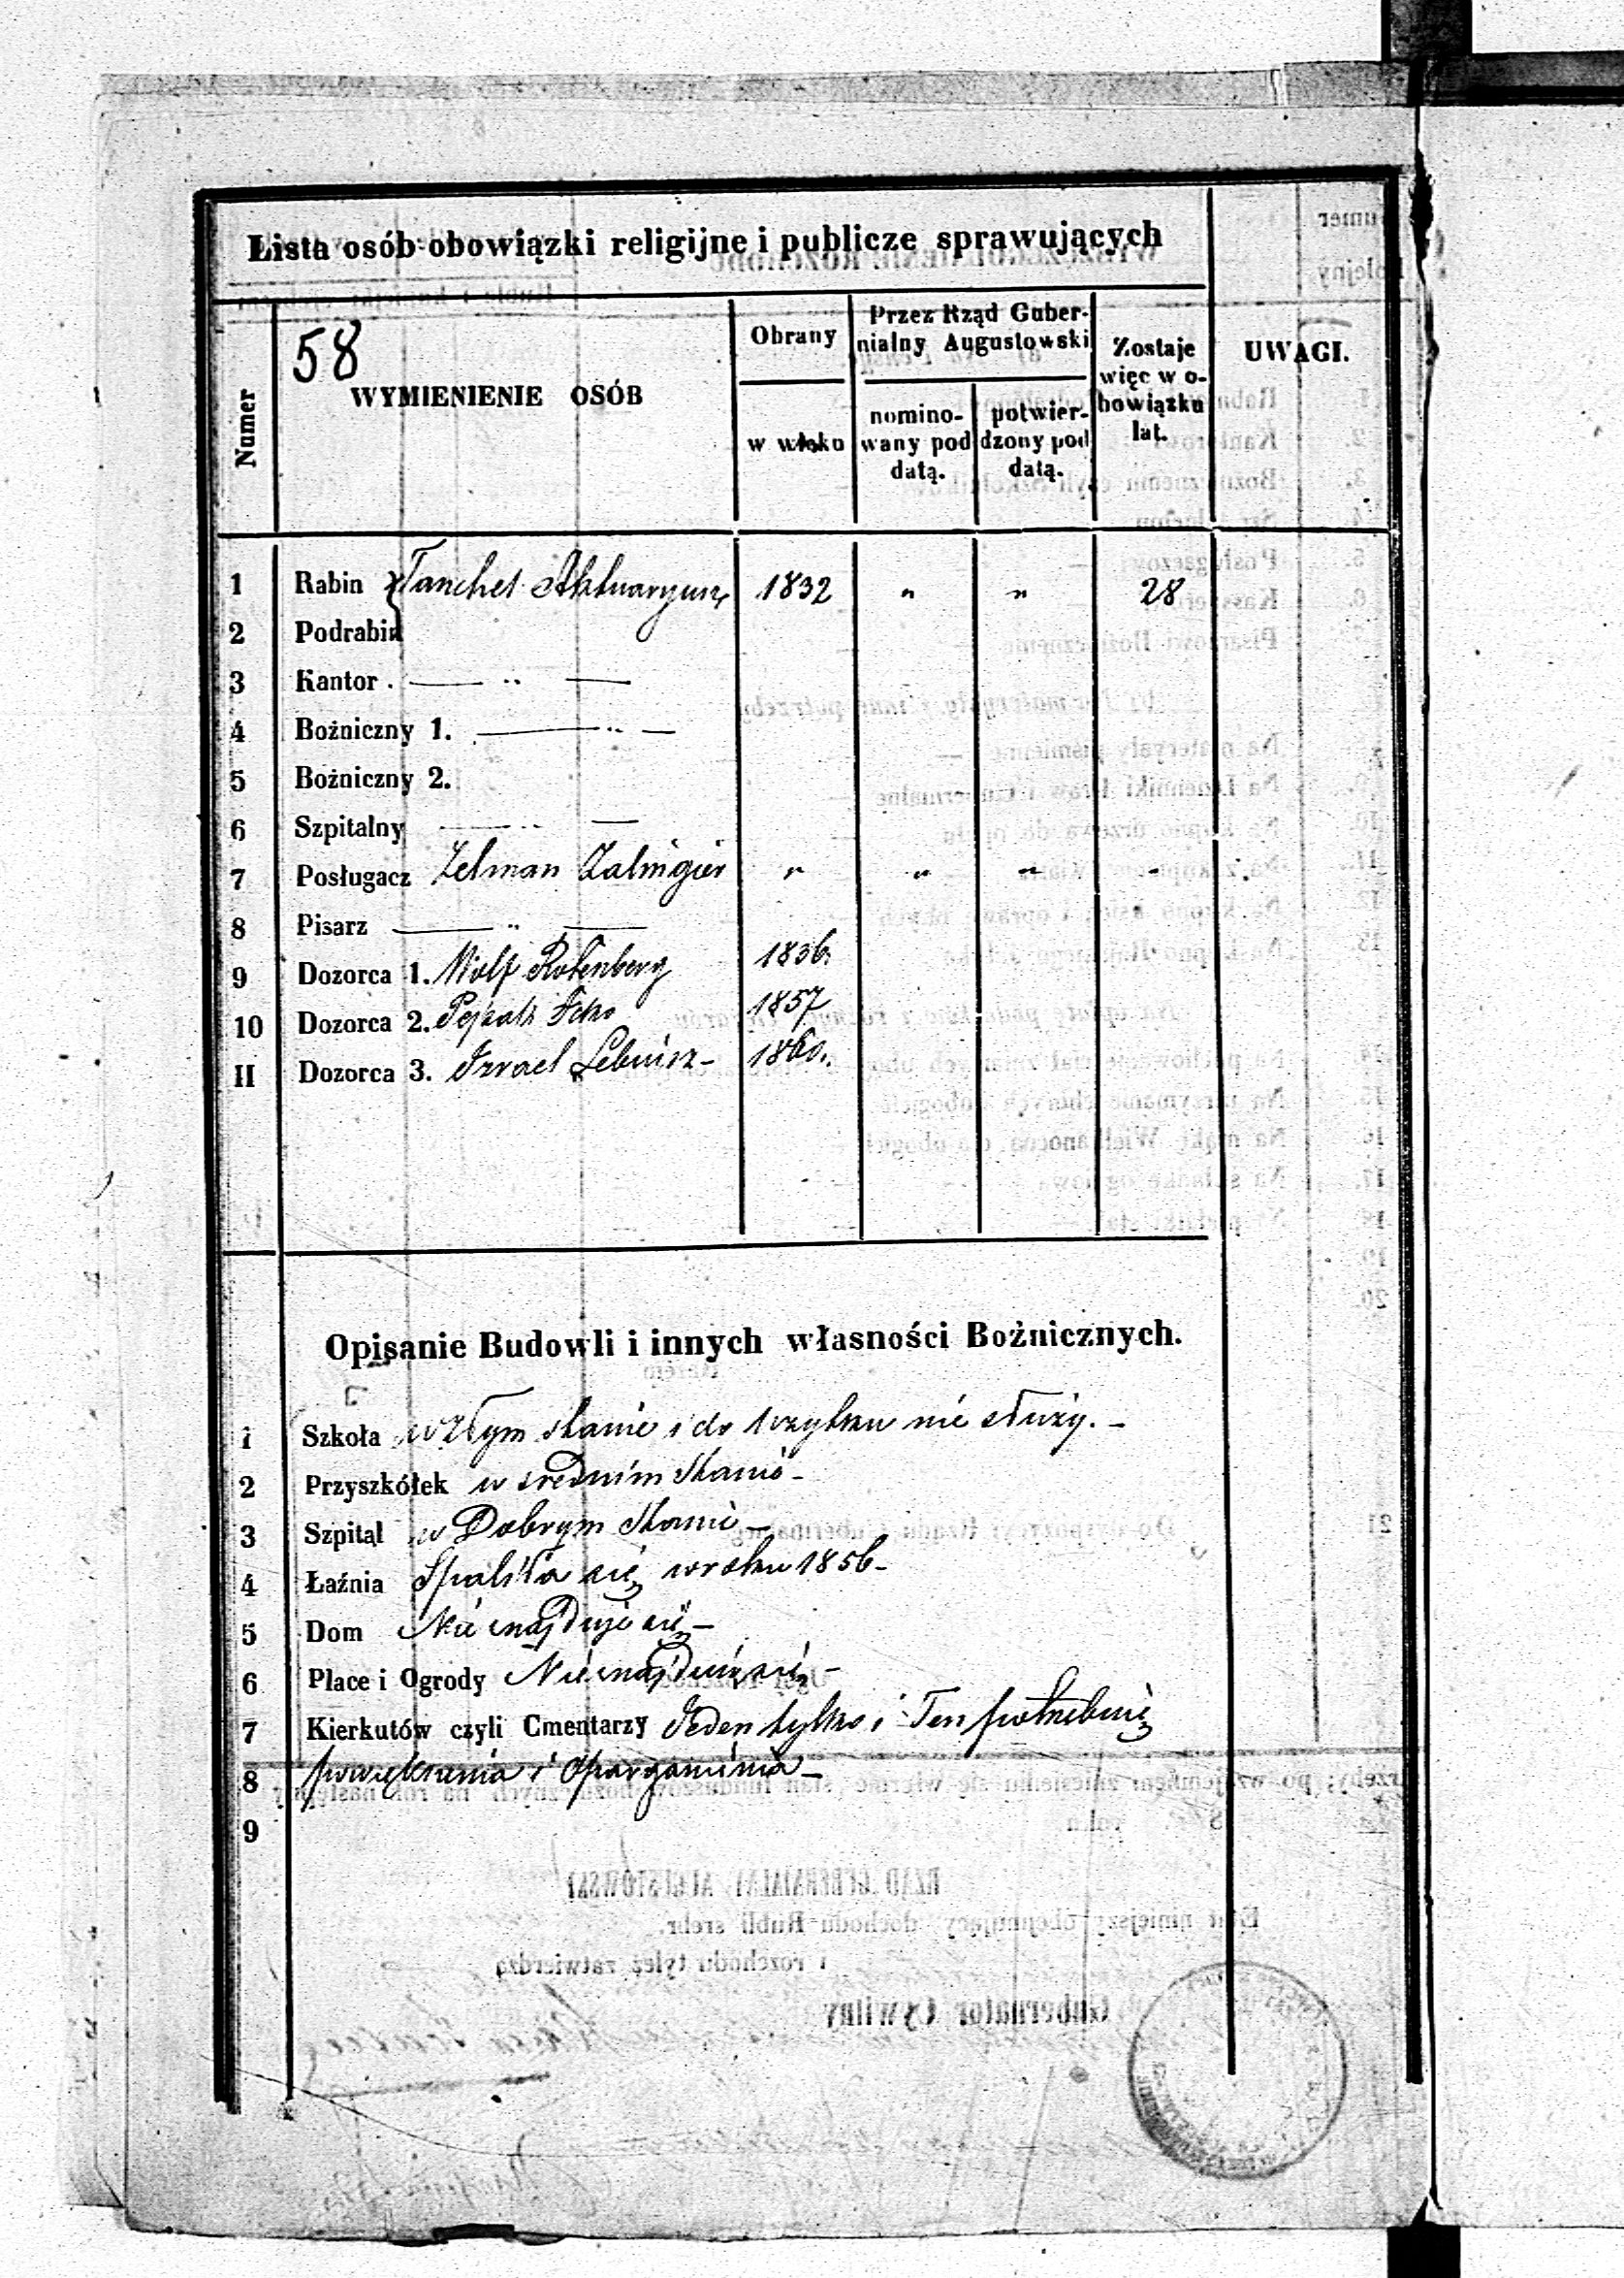 Lista osób obowiązki religijne i publicze sprawujących
58
Numer
WYMIENIENIE OSÓB
Obrany
w roku
Przez Rząd Guber-
nialny Augustowski
nomino-
wany pod
datą.
potwier-
dzony pod
datą.
Zostaje
więc w o-
bowiązku
lat.
UWAGI.
1 Rabin Tanchel 1832 " " 28
2 Podrabin
3 Kantor . — " —
4 Bożniczny 1. — " —
5 Bożniczny 2.
6 Szpitalny — " —
7 Posługacz Zelman Zalingier " " " "
8 Pisarz — " —
9 Dozorca 1. Wolf Rotenberg 1836.
10 Dozorca 2. 1857
II Dozorca 3. Izrael 1860.
Opisanie Budowli i innych własności Bożnicznych.
1 Szkoła w złym stanie i do użytku nie służy. –
2 Przyszkółek w średnim stanie –
3 Szpital w Dobrym stanie –
4 Łaźnia Spaliła się w roku 1856 –
5 Dom Nie znajduje się –
6 Place i Ogrody Nie znajdują się –
7 Kierkutów czyli Cmentarzy Jeden tylko i Ten potrzebuje
8 powiększenia i Oparganienia –
9